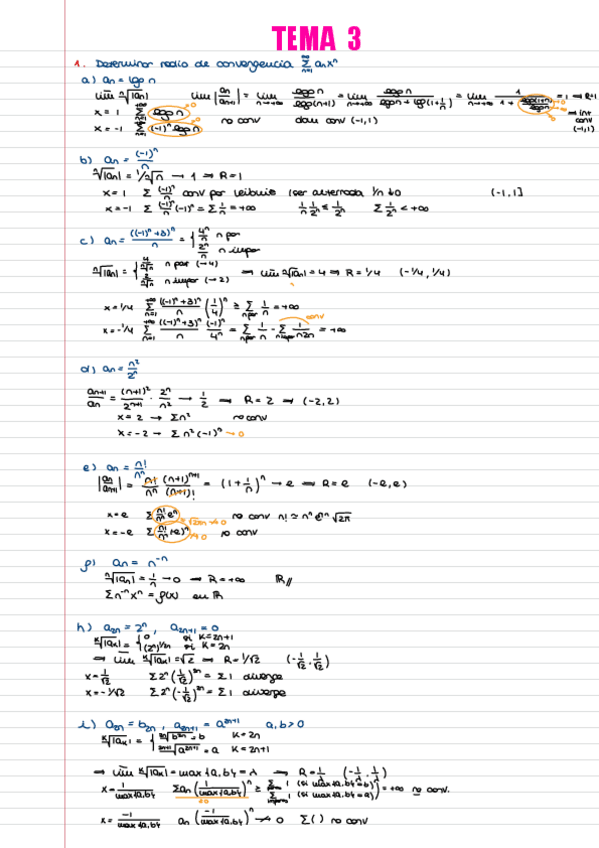 TEMA 3
1. Determinar radio de convergencia Σ_{n=1}^{∞} anxⁿ
a) an = log n
x = 1
no conv
dom conv (-1,1)
x = -1
b) an = (-1)ⁿ/n
ⁿ√|an| = 1/ⁿ√n → 1 ⇒ R=1
x = 1 Σ (-1)ⁿ/n conv por Leibniz (ser alternada 1/n ↓0 (-1,1]
x = -1 Σ (-1)ⁿ/n (-1)ⁿ = Σ 1/n = +∞ 1/n 1/2ⁿ ≤ 1/2ⁿ Σ 1/2ⁿ < +∞
c) an = ((-1)ⁿ+3)ⁿ/n = { 4ⁿ/n n par
2ⁿ/n n impar
ⁿ√|an| = { 4/ⁿ√n n par (→4)
2/ⁿ√n n impar (→2) ⇒ lim ⁿ√|an| = 4 ⇒ R = 1/4 (-1/4, 1/4)
x = 1/4 Σ_{n=1}^{+∞} ((-1)ⁿ+3)ⁿ/n (1/4)ⁿ ≥ Σ_{n par} 1/n = +∞
conv
x = -1/4 Σ_{n=1}^{+∞} ((-1)ⁿ+3)ⁿ/n (-1)ⁿ/4ⁿ = Σ_{n par} 1/n - Σ_{n impar} 1/n2ⁿ = +∞
d) an = n²/2ⁿ
an+1/an = (n+1)²/2ⁿ⁺¹ · 2ⁿ/n² → 1/2 ⇒ R = 2 ⇒ (-2,2)
x = 2 → Σn² no conv
x = -2 → Σ n²(-1)ⁿ →0
e) an = n!/nⁿ
|an/an+1| = n!/nⁿ (n+1)ⁿ⁺¹/(n+1)! = (1+1/n)ⁿ → e ⇒ R=e (-e,e)
x = e Σ n!/nⁿ eⁿ no conv
x = -e Σ n!/nⁿ (-e)ⁿ ↛0 no conv
f) an = n⁻ⁿ
ⁿ√|an| = 1/n → 0 ⇒ R = +∞ ℝ//
Σn⁻ⁿxⁿ = f(x) en ℝ
h) a2n = 2ⁿ, a2n+1 = 0
ᵏ√|ak| = { 0 si k = 2n+1
(2ⁿ)^{1/2n} si k = 2n
⇒ lim ᵏ√|ak| = √2 ⇒ R = 1/√2 (-1/√2, 1/√2)
x = 1/√2 Σ2ⁿ(1/√2)²ⁿ = Σ1 diverge
x = -1/√2 Σ2ⁿ(-1/√2)²ⁿ = Σ1 diverge
i) a2n = b2n, a2n+1 = a²ⁿ⁺¹ a,b>0
ᵏ√|ak| = { ²ⁿ√b²ⁿ = b k=2n
²ⁿ⁺¹√a²ⁿ⁺¹ = a k=2n+1
⇒ lim ᵏ√|ak| = max{a,b} = λ → R = 1/λ (-1/λ, 1/λ)
x = 1/max{a,b} Σan (1/max{a,b})ⁿ ≥ { Σ 1 (si max{a,b}=b)
Σ 1 (si max{a,b}=a) } = +∞ no conv.
x = -1/max{a,b} an (-1/max{a,b})ⁿ ↛ 0 Σ( ) no conv